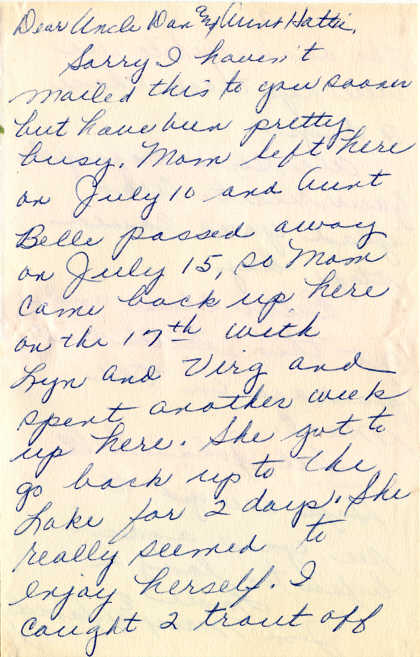 Dear Uncle Dan and Aunt Hattie,
Sorry I haven't
mailed this to you sooner
but have been pretty
busy. Mom left here
on July 10 and Aunt
Belle passed away
on July 15, so Mom
came back up here
on the 17th with
Lyn and Virg and
spent another week
up here. She got to
go back up to the
Lake for 2 days. She
really seemed to
enjoy herself. I
caught 2 trout off